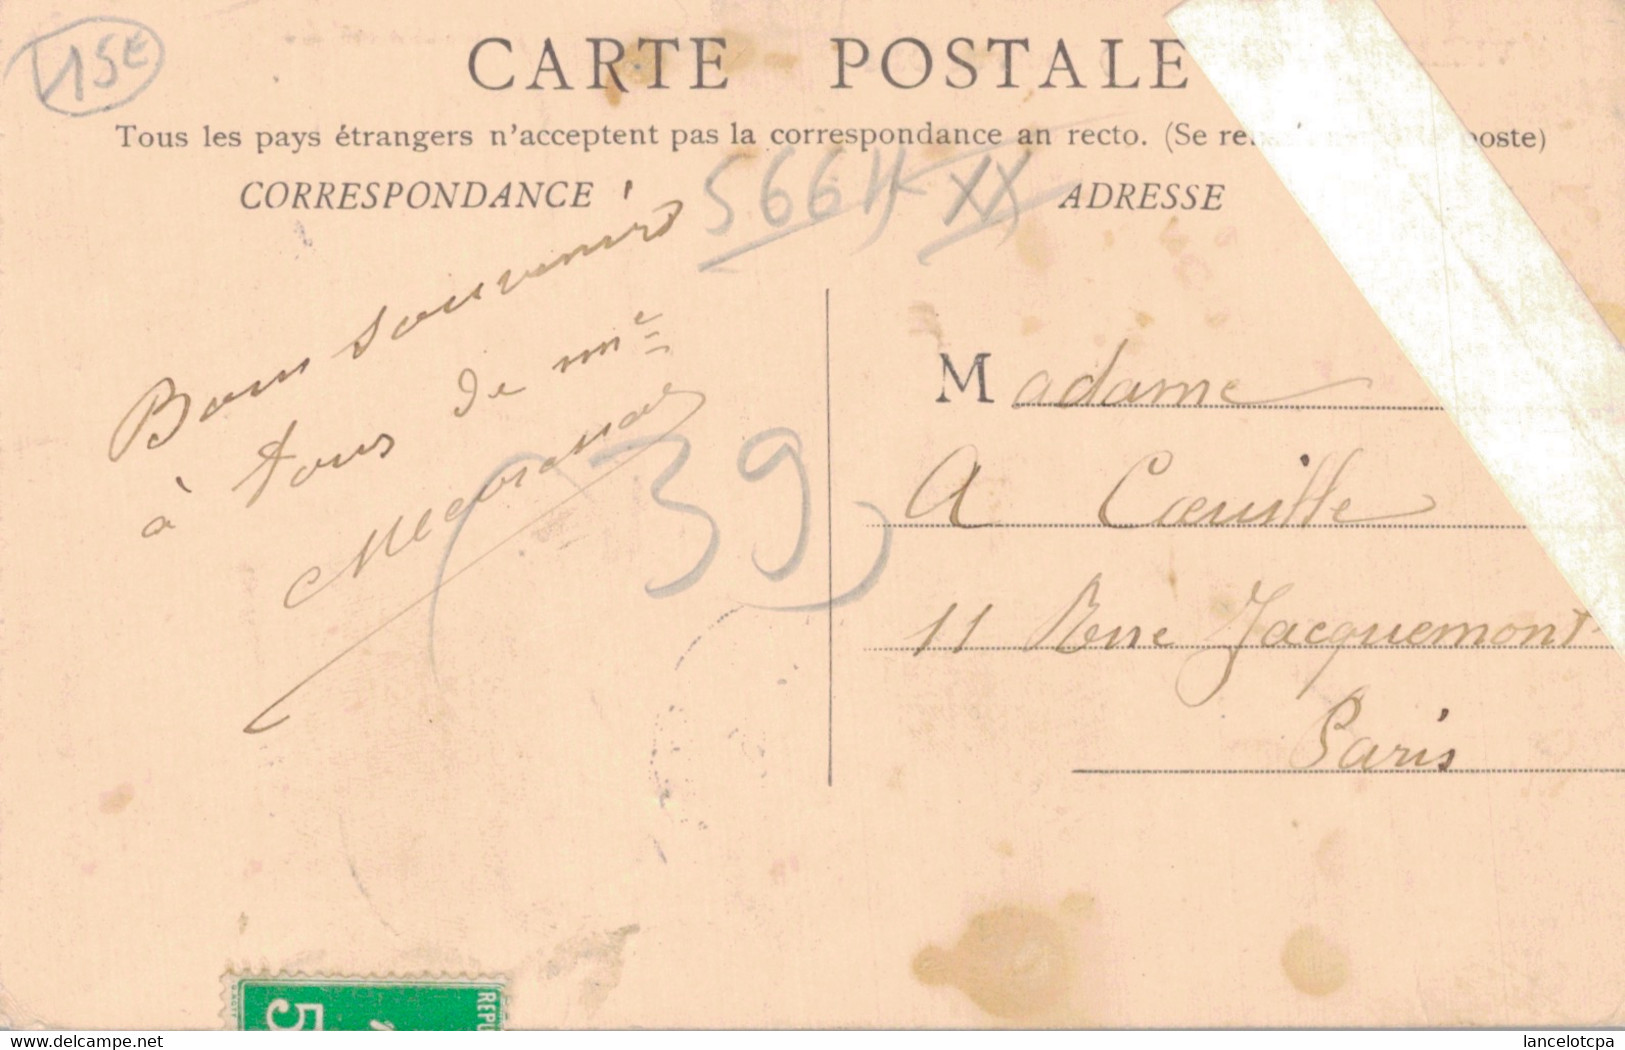 15€
CARTE POSTALE
Tous les pays étrangers n'acceptent pas la correspondance an recto. (Se re poste)
CORRESPONDANCE
ADRESSE
Bons souvenirs
à tous de
(39)
Madame
A Cœuille
11 Rue Jacquemont
Paris
5
REPU
delcampe.net
lancelotcpa